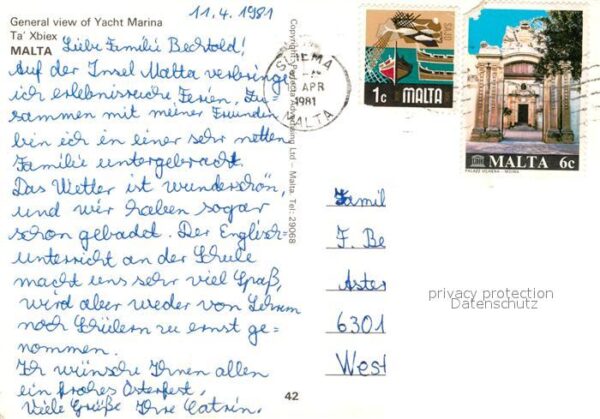 General view of Yacht Marina
Ta' Xbiex
MALTA
11.4.1981
Liebe Familie Bechtold!
Auf der Insel Malta verbringe
ich erlebnisreiche Ferien. Zu
sammen mit meiner Freundin
bin ich in einer sehr netten
Familie untergebracht.
Das Wetter ist wunderschön,
und wir haben sogar
schon gebadet. Der Englisch-
unterricht an der Schule
macht uns sehr viel Spaß,
wird aber weder von Lehrern
noch Schülern zu ernst ge-
nommen.
Ich wünsche Ihnen allen
ein frohes Osterfest.
Viele Grüße Ihre Catrin.
Advertising Ltd – Malta. Tel: 29068
42
SLIEMA
APR
1981
MALTA
1c MALTA
unesco
MALTA 6c
PALAZZ VILHENA - MDINA
Famil
F. Be
Aster
6301
West
privacy protection
Datenschutz